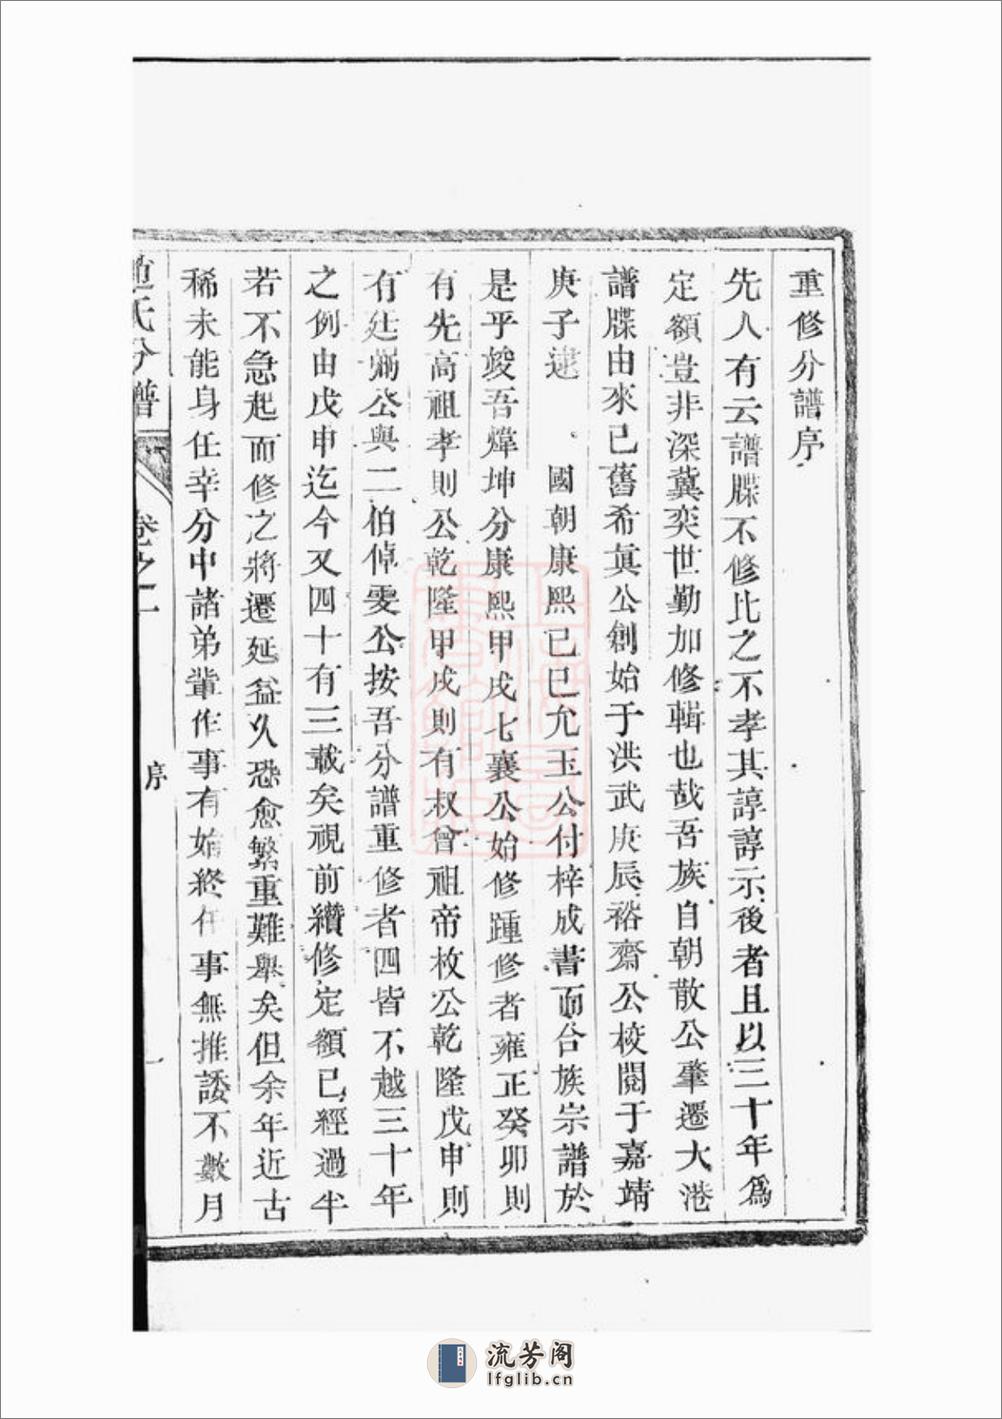 重修分譜序
先人有云譜牒不修比之不孝其諄諄示後者且以三十年爲
定額豈非深冀奕世勤加修輯也哉吾族自朝散公肇遷大港
譜牒由來已舊希眞公創始于洪武庚辰裕齋公校閱于嘉靖
庚子逮　國朝康熙己巳允玉公付梓成書而合族宗譜於
是乎竣吾煒坤分康熙甲戌七襄公始修踵修者雍正癸卯則
有先高祖孝則公乾隆甲戌則有叔曾祖帝枚公乾隆戊申則
有廷弼公與二伯倬雯公按吾分譜重修者四皆不越三十年
之例由戊申迄今又四十有三載矣視前纘修定額已經過半
若不急起而修之將遷延益久恐愈繁重難舉矣但余年近古
稀未能身任幸分中諸弟輩作事有始終任事無推諉不數月
趙氏分譜
卷之一
序
一
流芳阁
lfglib.cn